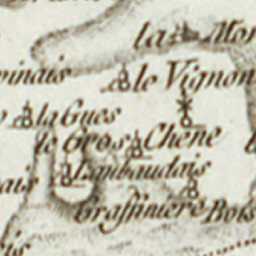 la Mon
vinais
le Vignon
la Gues
le Gros Chene
Laubaudais
ais
Grassiniere Bois
is